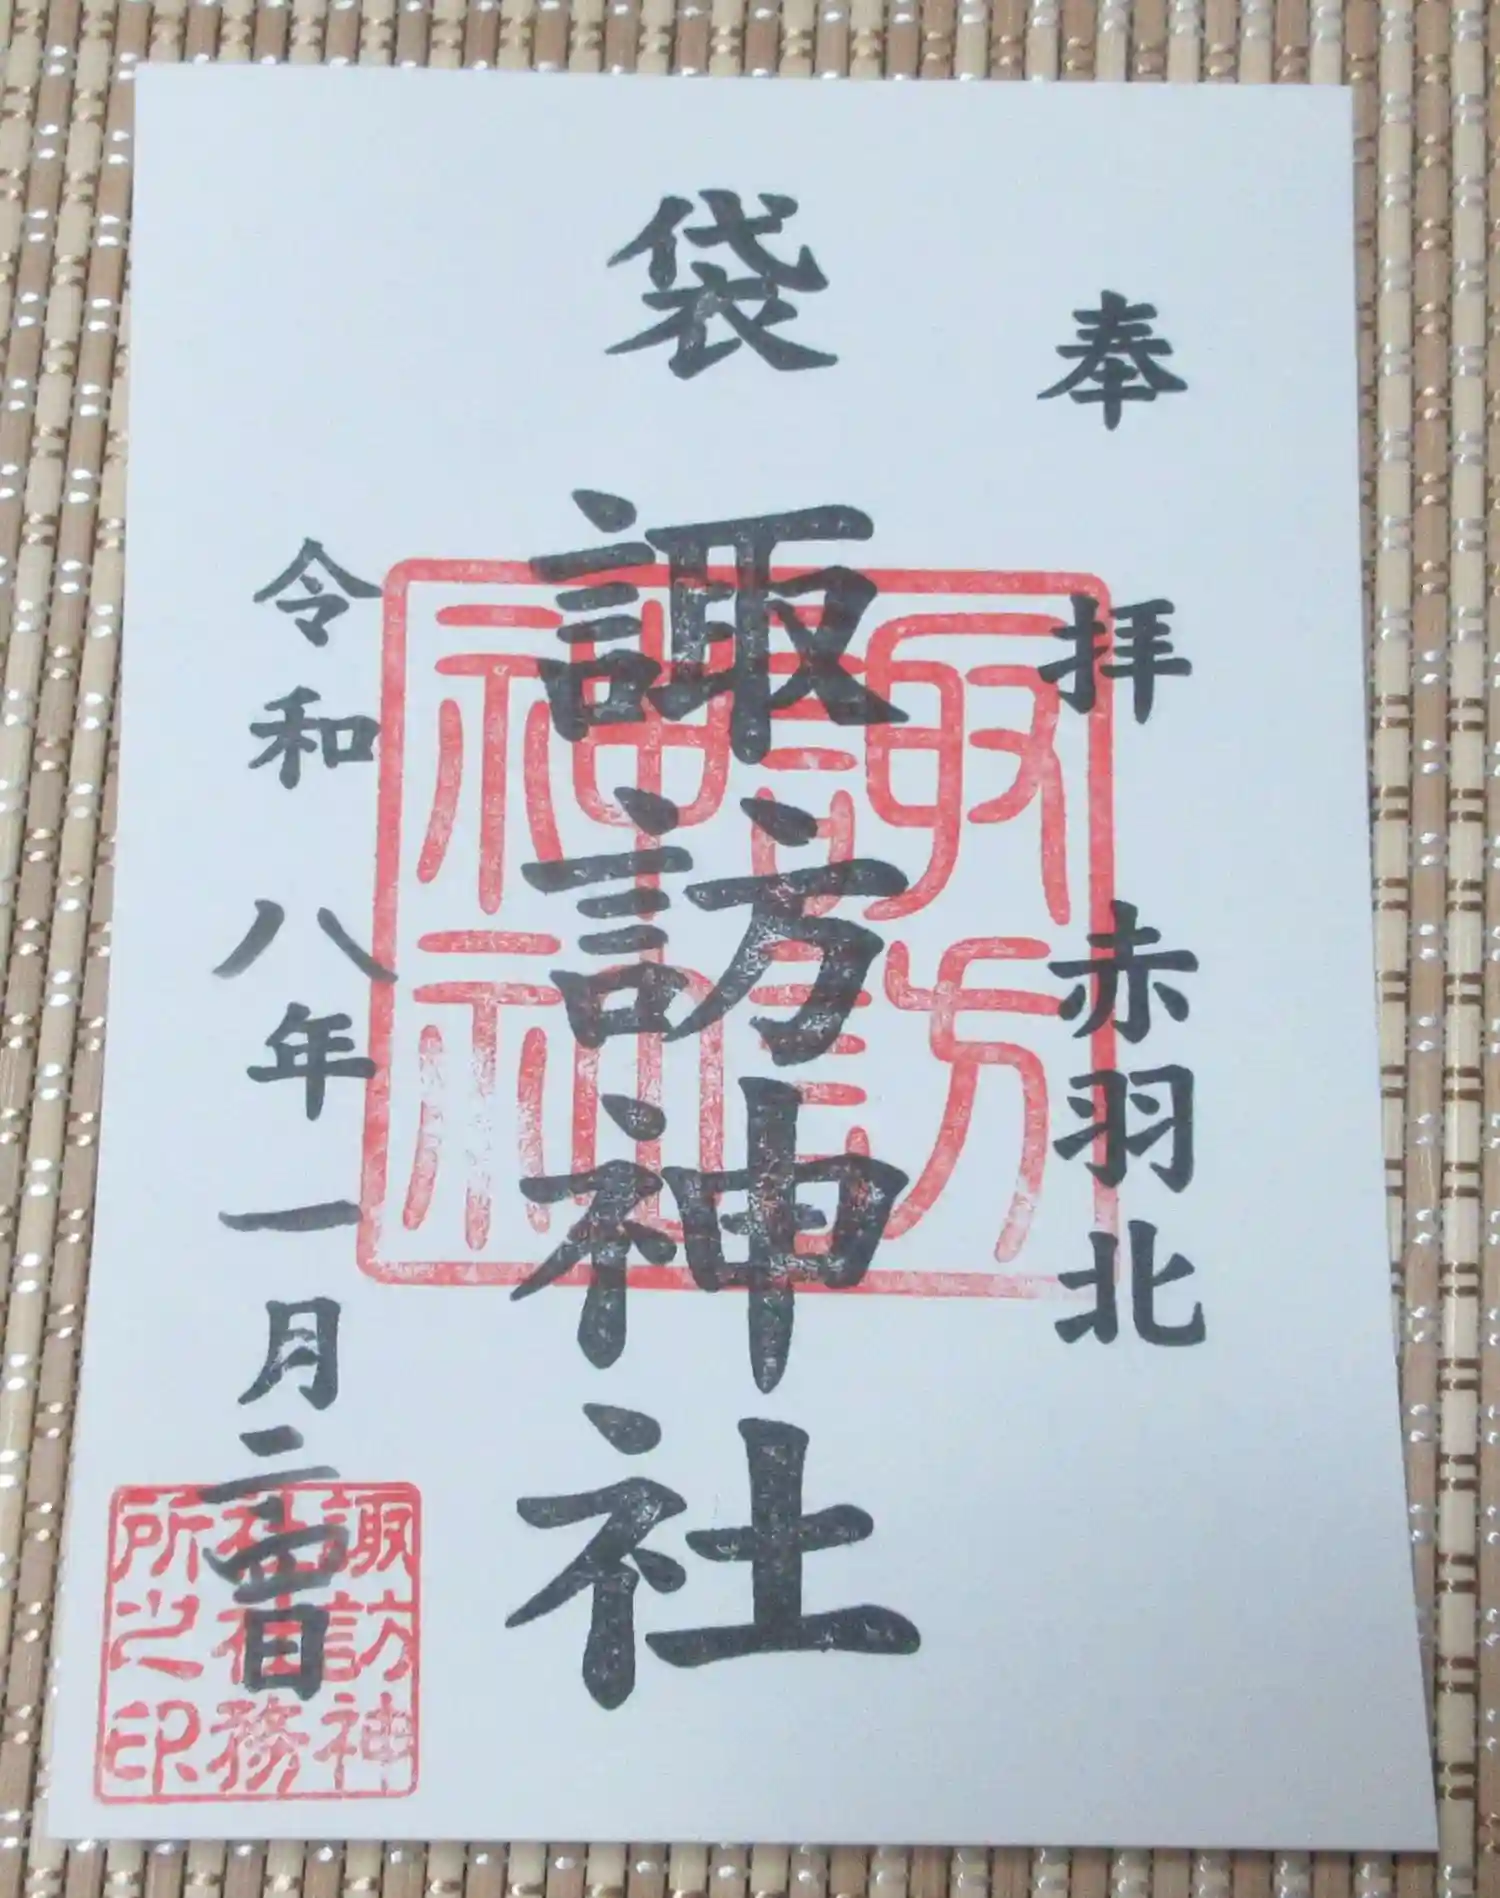 奉拝　赤羽北
袋　諏訪神社
令和八年一月日
諏訪
神社
諏訪神
社社務
所之印